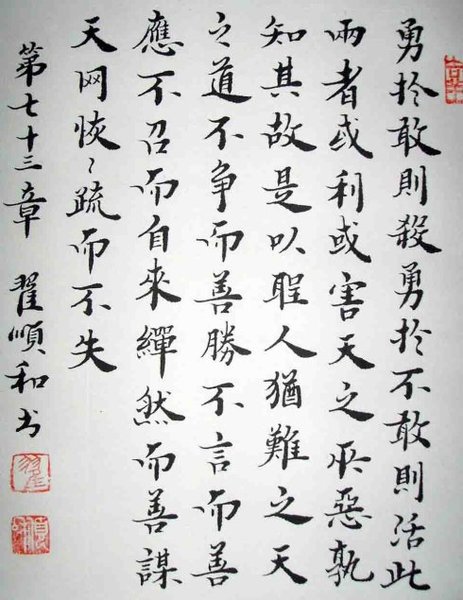 勇於敢則殺勇於不敢則活此
兩者或利或害天之所惡孰
知其故是以聖人猶難之天
之道不争而善勝不言而善
應不召而自來繟然而善謀
天网恢〻疏而不失
第七十三章 翟順和书